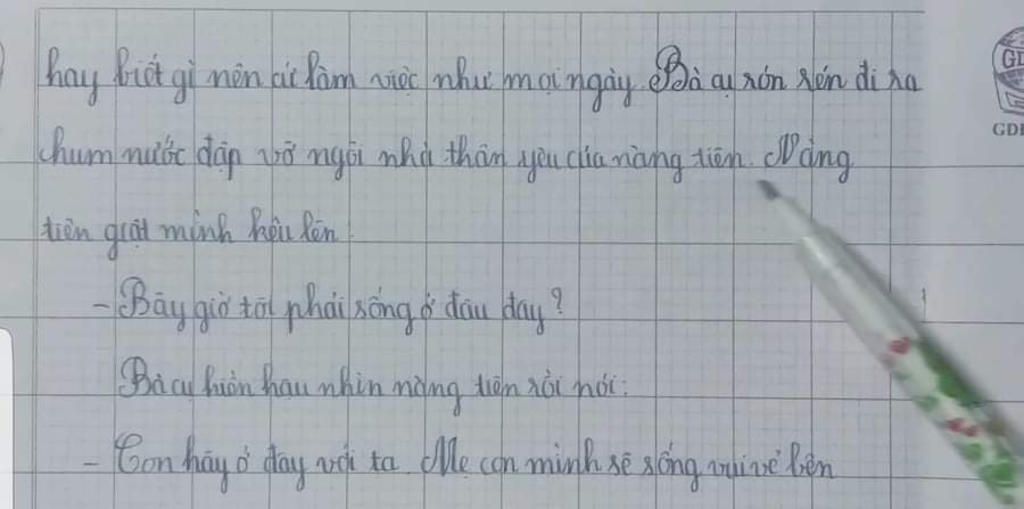 hay biết gì nên cứ làm việc như mọi ngày. Bà cụ rón rén đi ra
chum nước đập vỡ ngôi nhà thân yêu của nàng tiên. Nàng
tiên giật mình kêu lên:
- Bây giờ tôi phải sống ở đâu đây?
Bà cụ hiền hậu nhìn nàng tiên rồi nói:
- Con hãy ở đây với ta. Mẹ con mình sẽ sống vui vẻ bên